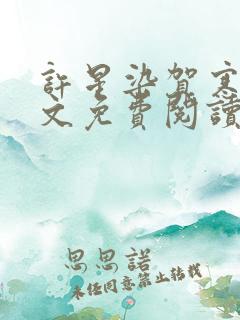 許星染賀寒
文免費閱讀
思思諾
未經同意禁止轉載